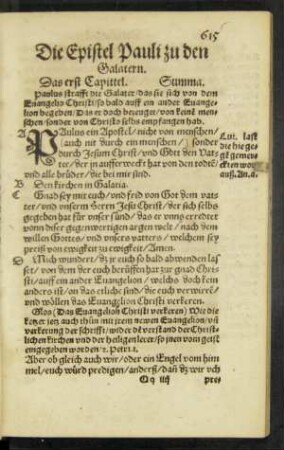 615
Die Epistel Pauli zu den
Galatern.
Das erst Capittel. Summa.
Paulus strafft die Galater/das sie sich von dem
Euangelio Christi/so bald auff ein ander Euange-
lion begeben/Das er doch bezeuget/von keinē men-
schen/sonder von Christo selbs empfangen hab.
A PAulus ein Apostel/nicht von menschen/
auch nit durch ein menschen/ sonder
durch Jesum Christ/vnd Gott den Vat-
ter/der jn aufferweckt hat von den todtē
vnd alle brüder/die bei mir sind.
Lut. laßt
die hie ge-
B Den kirchen in Galatia.
C Gnad sey mit euch/vnd frid von Got dem vat-
ter/vnd vnserm Herrn Jesu Christ/der sich selbs
gegeben hat für vnser sünd/das er vnns erredtet
vonn diser gegenwertigen argen welt/nach dem
willen Gottes/vnd vnsers vatters/welchem sey
preiß von ewigkeit zu ewigkeit/Amen.
D Mich wundert/dz jr euch so bald abwenden las
set/von dem der euch berüffen hat zur gnad Chri-
sti/auff ein ander Euangelion/welchs doch kein
anders ist/on das etliche sind/die euch verwirrē/
vnd wöllen das Euangelion Christi verkeren.
Glos (Das Euangelion Christi verkeren) Wie die
ketzer jetz auch thůn mit jrem newen Euangelion/vñ
verkerung der schrifft/wider dē verstand der Christ-
lichen kirchen vnd der heiligen leer/so jnen vom geist
eingegeben worden/2. Petri.1.
Aber ob gleich auch wir/oder ein Engel vom him
mel/euch würd predigen/anderst/dañ dz wir vch
Qq iiij pre-